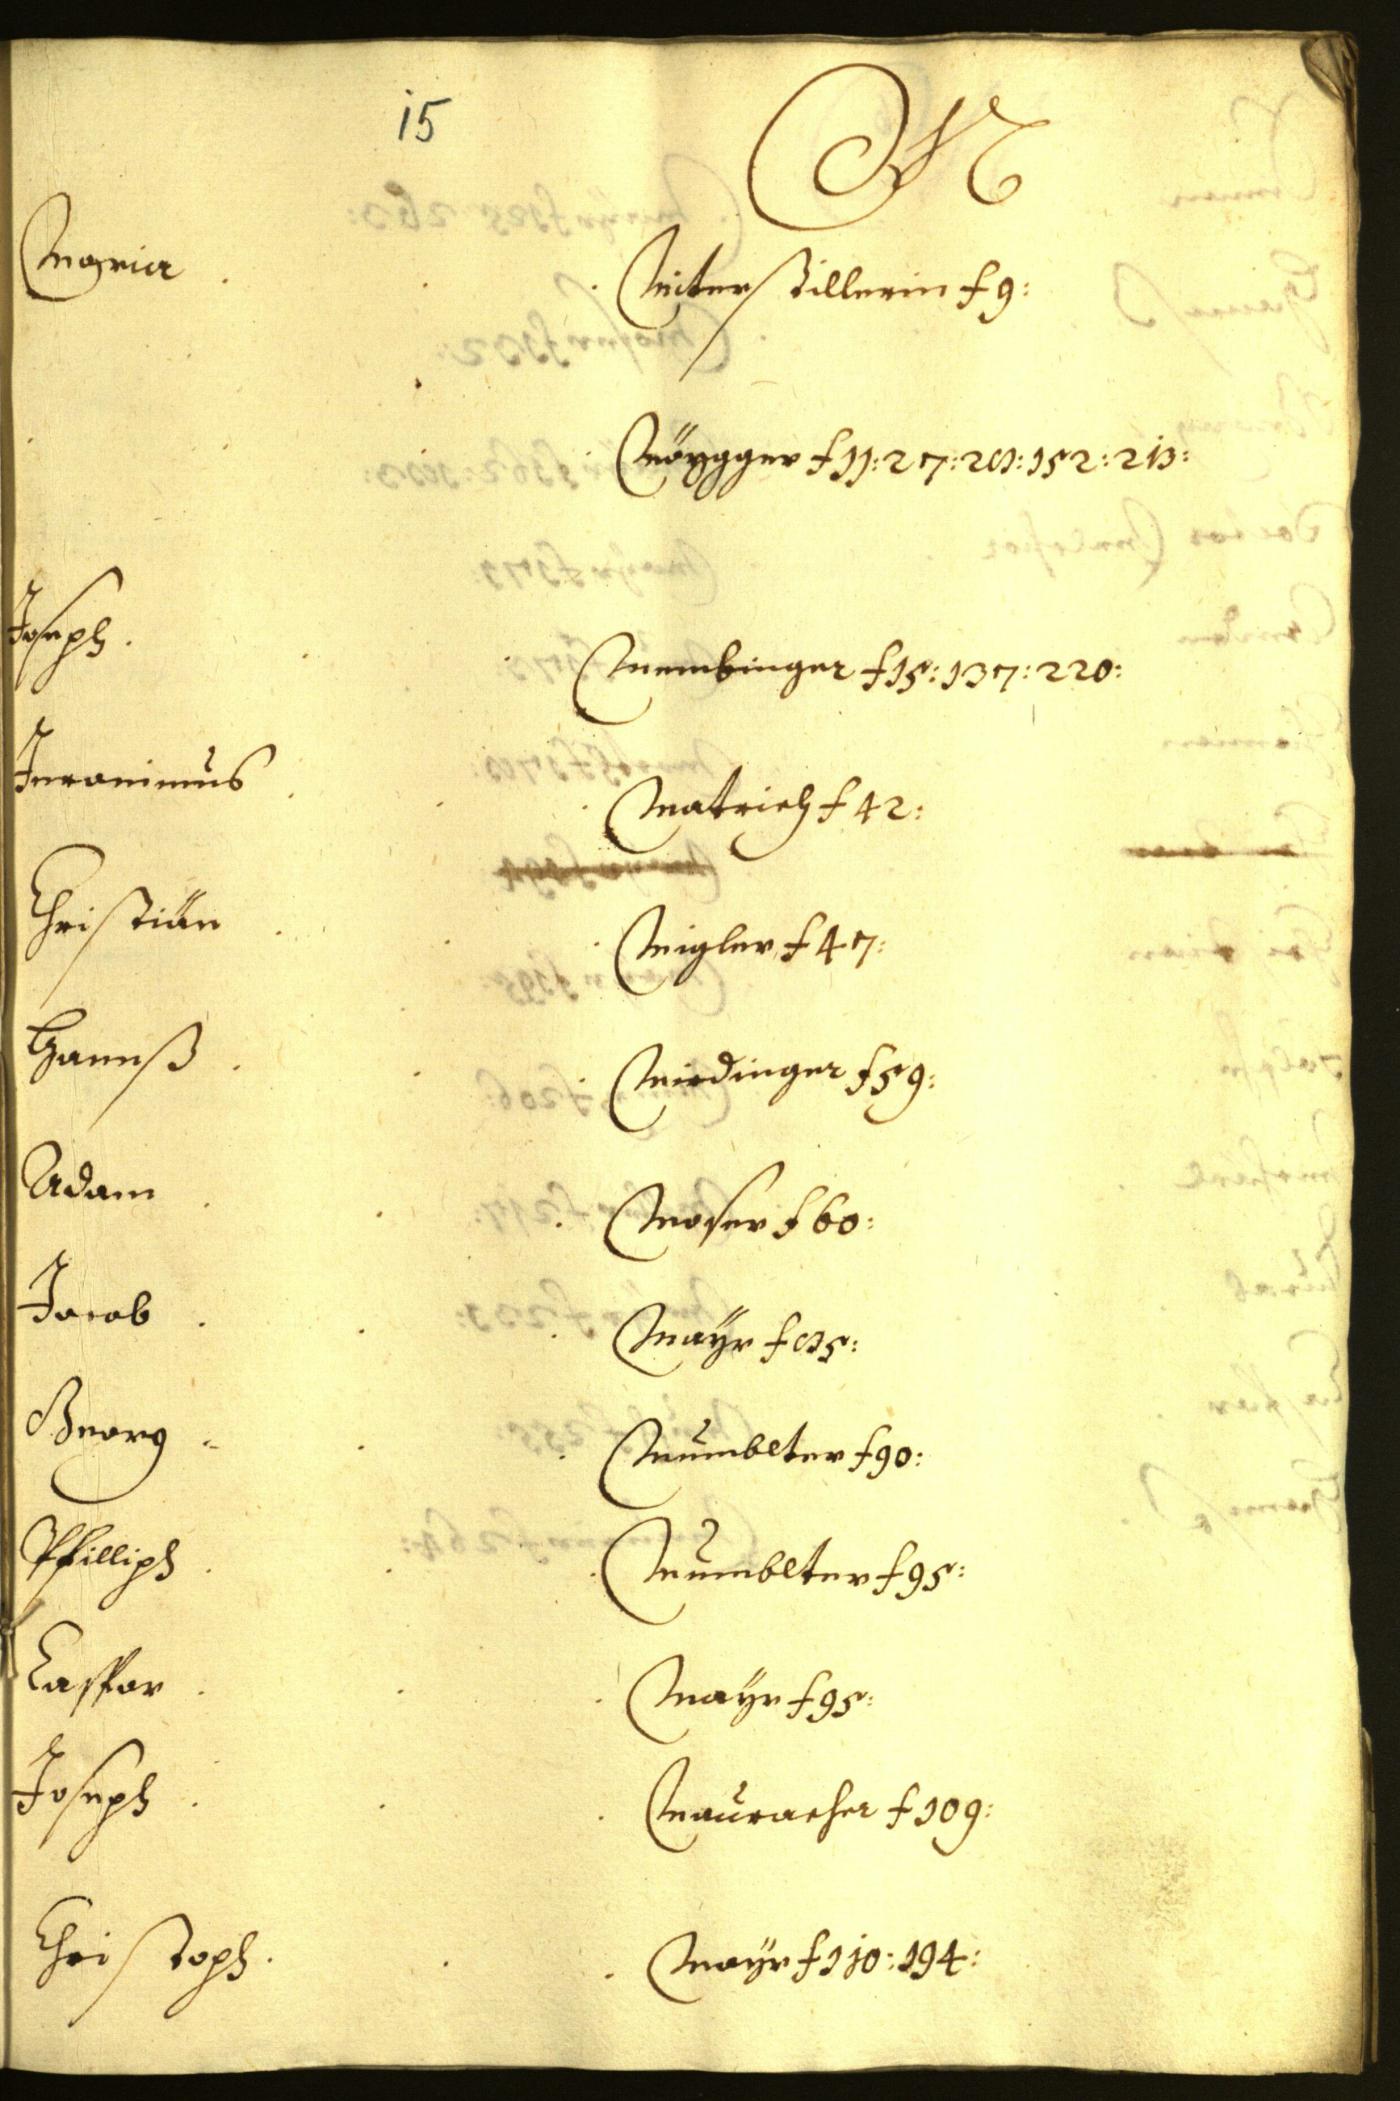 15
M
Maria . . . Mitterstillerin f 9:
Möygger f 11: 27: 28: 152: 213:
Joseph . . . Membinger f 15: 137: 220:
Jeronimus . . . Matrich f 42:
Christian . . . Migler f 47:
Hannß . . . Miedinger f 59:
Adam . . . Moser f 60:
Jacob . . . Mayr f 85:
Georg . . . Mumblter f 90:
Philliph . . . Mumblter f 95:
Caspar . . . Mayr f 95:
Joseph . . . Mauracher f 109:
Christoph . . . Mayr f 110: 194: